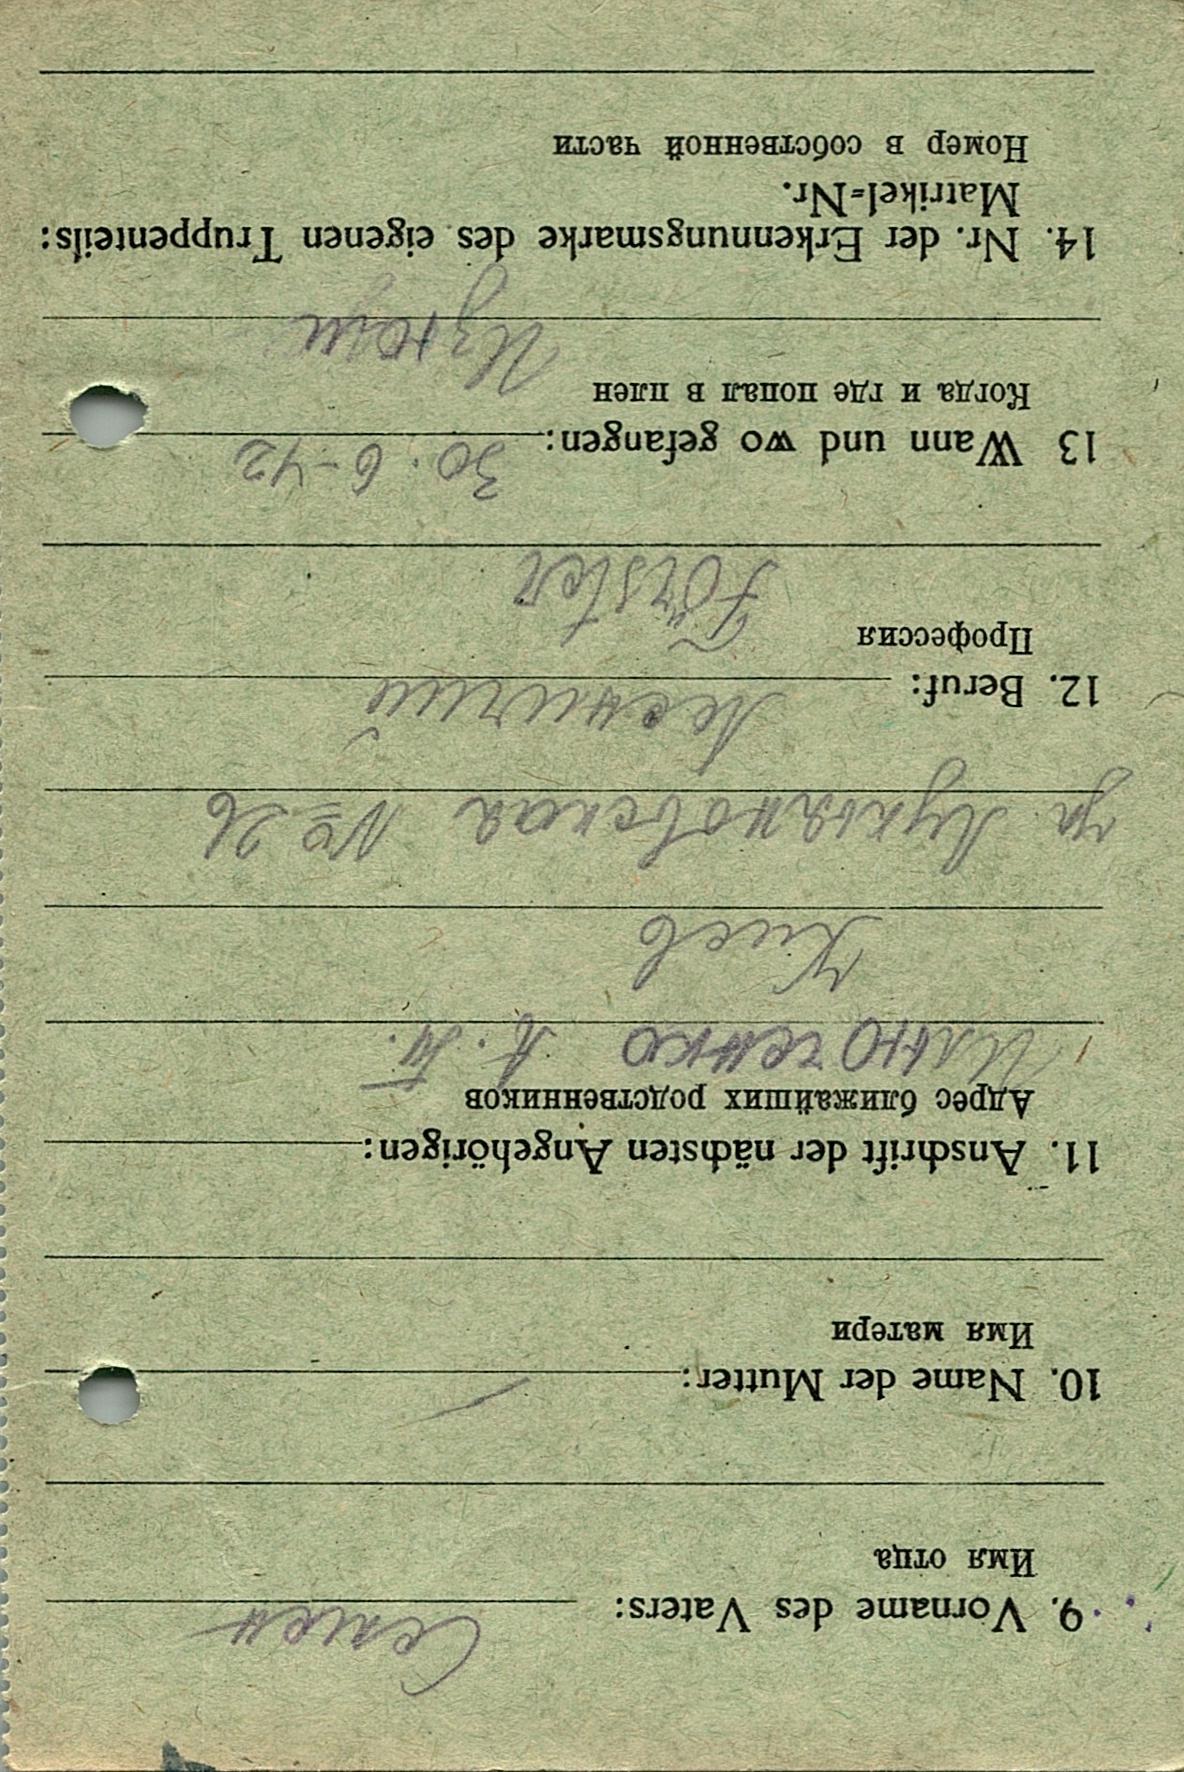 9. Vorname des Vaters: Семен
Имя отца
10. Name der Mutter: —
Имя матери
11. Anschrift der nächsten Angehörigen:
Адрес ближайших родственников
Ильюченко А. Т.
Киев
ул Лукьяновская № 26
12. Beruf: Лесничий
Профессия
Förster
13 Wann und wo gefangen: 30. 6-42
Когда и где попал в плен
Изюм
14. Nr. der Erkennungsmarke des eigenen Truppenteils:
Matrikel=Nr.
Номер в собственной части